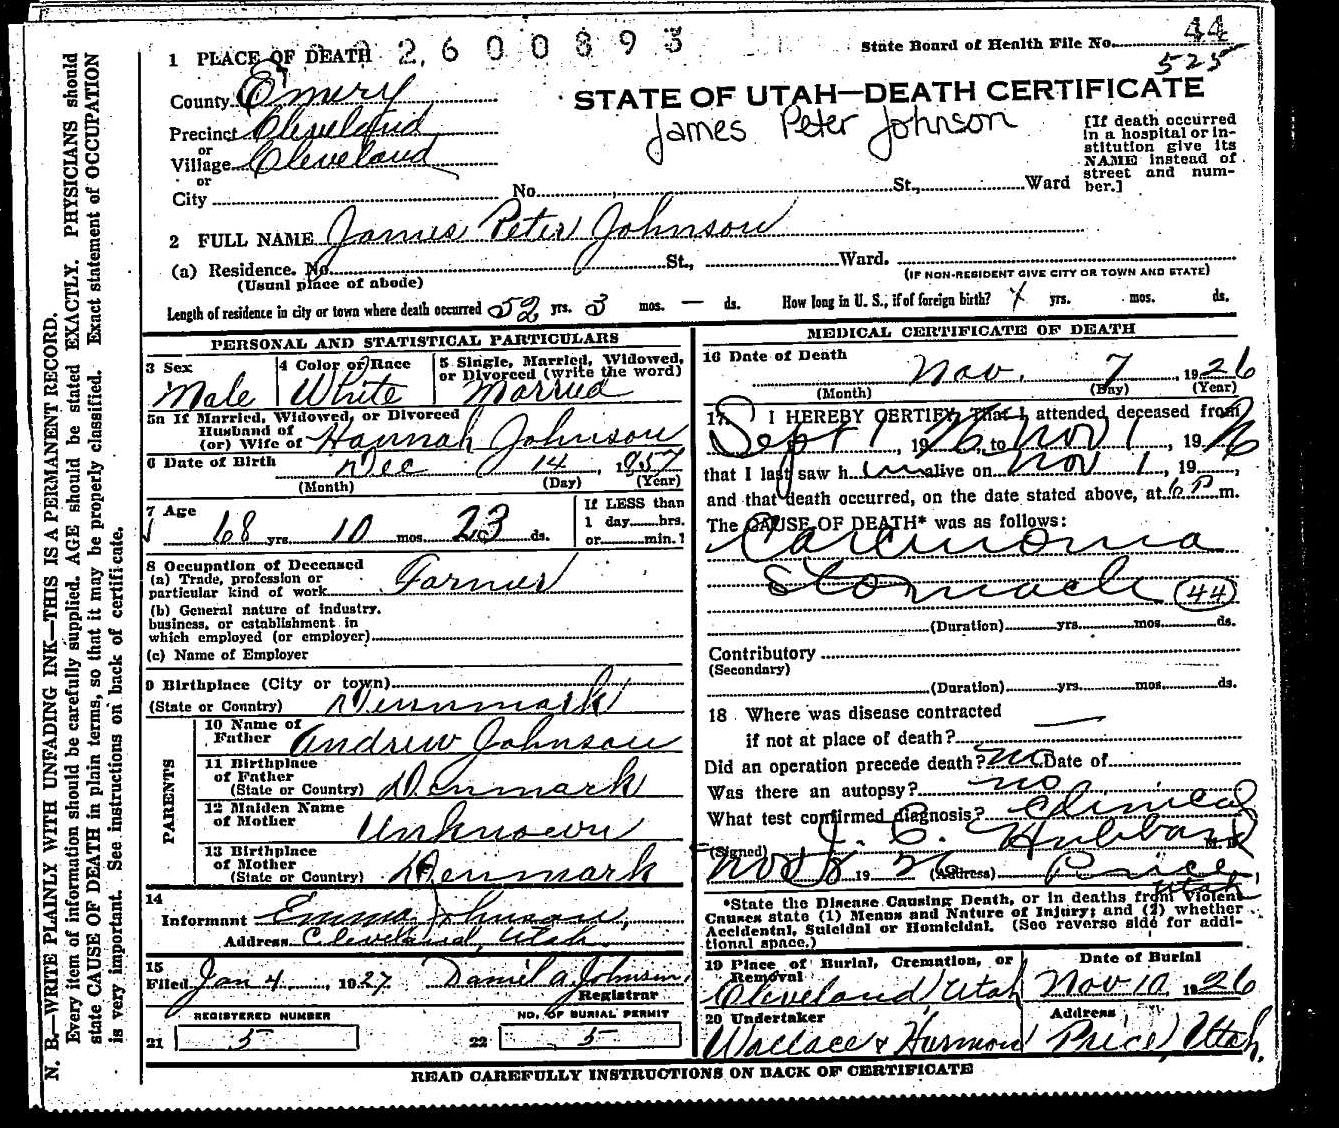 44
State Board of Health File No. 525
1 PLACE OF DEATH 2600893
County Emery
STATE OF UTAH—DEATH CERTIFICATE
Precinct Cleveland
James Peter Johnson
or
Village Cleveland
or
City No. St., Ward
[If death occurred
in a hospital or in-
stitution give its
NAME instead of
street and num-
ber.]
2 FULL NAME James Peter Johnson
(a) Residence. No. St., Ward.
(Usual place of abode) (IF NON-RESIDENT GIVE CITY OR TOWN AND STATE)
Length of residence in city or town where death occurred 52 yrs. 3 mos. — ds. How long in U. S., if of foreign birth? yrs. mos. ds.
PERSONAL AND STATISTICAL PARTICULARS
3 Sex
Male
4 Color or Race
White
5 Single, Married, Widowed,
or Divorced (write the word)
Married
5a If Married, Widowed, or Divorced
Husband of
(or) Wife of Hannah Johnson
6 Date of Birth Dec 14, 1857
(Month) (Day) (Year)
7 Age
68 yrs. 10 mos. 23 ds.
If LESS than
1 day......hrs.
or......min.?
8 Occupation of Deceased
(a) Trade, profession or
particular kind of work Farmer
(b) General nature of industry.
business, or establishment in
which employed (or employer)
(c) Name of Employer
9 Birthplace (City or town)
(State or Country) Dennmark
PARENTS
10 Name of
Father Andrew Johnson
11 Birthplace
of Father
(State or Country) Denmark
12 Maiden Name
of Mother Unknown
13 Birthplace
of Mother
(State or Country) Denmark
14
Informant Emma Johnson,
Address Cleveland, Utah.
15
Filed Jan 4, 1927 Daniel A. Johnson
Registrar
REGISTERED NUMBER
21 5
NO. OF BURIAL PERMIT
22 5
MEDICAL CERTIFICATE OF DEATH
16 Date of Death
Nov. 7, 1926
(Month) (Day) (Year)
17. I HEREBY CERTIFY, That I attended deceased from
Sept 1, 1926, to Nov 1, 1926
that I last saw him alive on Nov 1, 19
and that death occurred, on the date stated above, at 6 P m.
The CAUSE OF DEATH* was as follows:
Carcinoma
Stomach (44)
(Duration) yrs. mos. ds.
Contributory
(Secondary)
(Duration) yrs. mos. ds.
18 Where was disease contracted
if not at place of death? —
Did an operation precede death? no Date of
Was there an autopsy? no
What test confirmed diagnosis? Clinical
(Signed) J. C. Hubbard M.D.
Nov 8 1926 (Address) Price
Utah
*State the Disease Causing Death, or in deaths from Violent
Causes state (1) Means and Nature of Injury; and (2) whether
Accidental, Suicidal or Homicidal. (See reverse side for addi-
tional space.)
19 Place of Burial, Cremation, or
Removal
Cleveland, Utah
Date of Burial
Nov 10, 1926
20 Undertaker
Wallace & Harmon
Address
Price, Utah.
READ CAREFULLY INSTRUCTIONS ON BACK OF CERTIFICATE
N. B.—WRITE PLAINLY WITH UNFADING INK—THIS IS A PERMANENT RECORD.
Every item of information should be carefully supplied. AGE should be stated EXACTLY. PHYSICIANS should
state CAUSE OF DEATH in plain terms, so that it may be properly classified. Exact statement of OCCUPATION
is very important. See instructions on back of certificate.